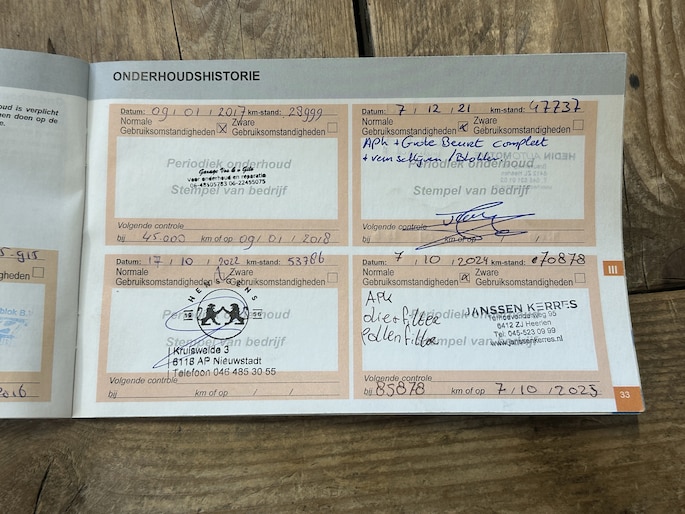 oud is verplicht
en doen op de
e.
ONDERHOUDSHISTORIE
Datum: 09 / 01 / 2017 km-stand: 28999
Normale Zware
Gebruiksomstandigheden X Gebruiksomstandigheden
Periodiek onderhoud
voor onderhoud en reparatie
06-48505783 06-22455075
Stempel van bedrijf
Volgende controle
bij 45.000 km of op 09 / 01 / 2018
Datum: 7 / 12 / 21 km-stand: 47737
Normale Zware
Gebruiksomstandigheden X Gebruiksomstandigheden
APK + Grote Beurt compleet
Periodiek onderhoud
Stempel van bedrijf
Volgende controle
bij km of op / /
Datum: 17 / 10 / 2022 km-stand: 53786
Normale Zware
Gebruiksomstandigheden Gebruiksomstandigheden
HERSGENS
Stempel van bedrijf
Kruisweide 3
6118 AP Nieuwstadt
Telefoon 046 485 30 55
Volgende controle
bij km of op / /
Datum: 7 / 10 / 2024 km-stand: 70878
Normale Zware
Gebruiksomstandigheden X Gebruiksomstandigheden
APK
oliefilter
pollenfilter
JANSSEN KERRES
6412 ZJ Heerlen
Tel. 045-523 09 99
www.janssenkerres.nl
Volgende controle
bij 85878 km of op 7 / 10 / 2025
gheden
III
33